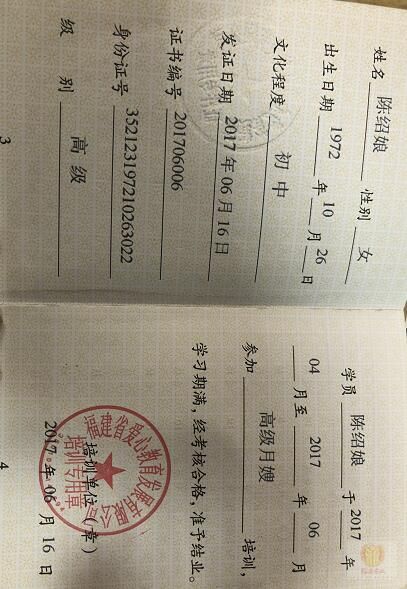 姓名 陈绍娘 性别 女
出生日期 1972 年 10 月 26 日
文化程度 初中
发证日期 2017 年 06 月 16 日
证书编号 201706006
身份证号 352123197210263022
级 别 高级
3
学员 陈绍娘 于 2017 年
04 月至 2017 年 06 月
参加 高级月嫂 培训，
学习期满，经考核合格，准予结业。
培训单位（章）
2017 年 06 月 16 日
培训专用章
4